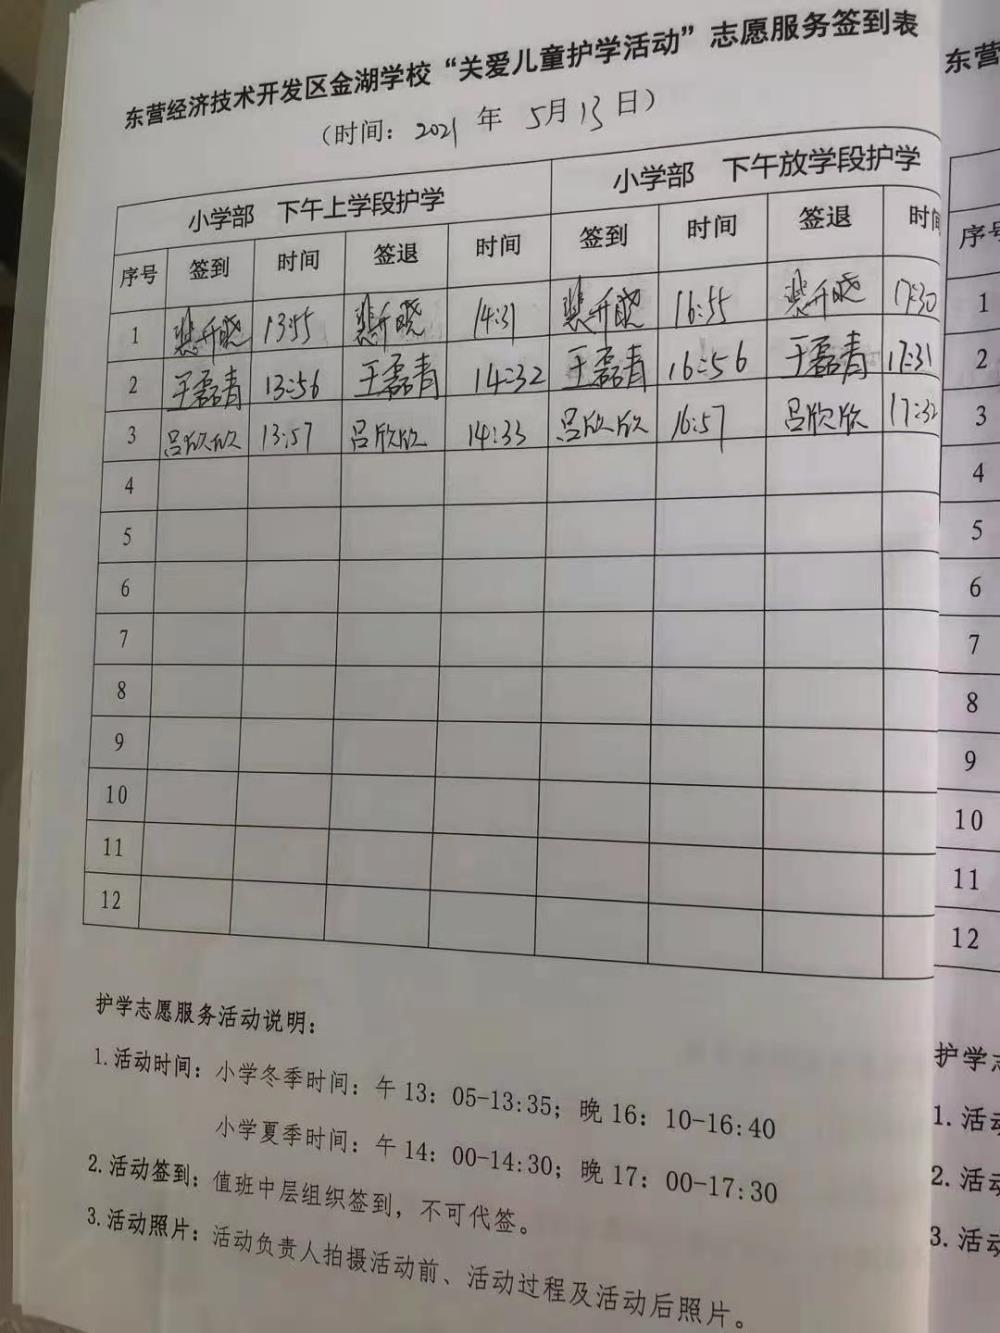 东营经济技术开发区金湖学校“关爱儿童护学活动”志愿服务签到表
（时间：2021 年 5月 13 日）
小学部 下午上学段护学 小学部 下午放学段护学
序号 签到 时间 签退 时间 签到 时间 签退 时间
1 13:55 14:31 16:55 17:30
2 王磊青 13:56 王磊青 14:32 王磊青 16:56 王磊青 17:31
3 吕欣欣 13:57 吕欣欣 14:33 吕欣欣 16:57 吕欣欣 17:32
4
5
6
7
8
9
10
11
12
护学志愿服务活动说明：
1.活动时间：小学冬季时间：午 13：05-13:35；晚 16：10-16:40
小学夏季时间：午 14：00-14:30；晚 17：00-17:30
2.活动签到：值班中层组织签到，不可代签。
3.活动照片：活动负责人拍摄活动前、活动过程及活动后照片。
东营
序号
1
2
3
4
5
6
7
8
9
10
11
12
护学
1.活
2.活
3.活